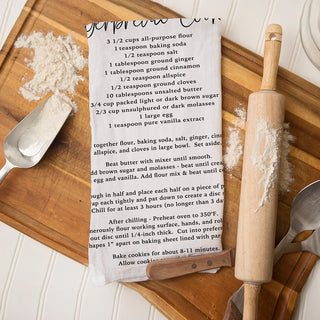 gerbread Co
3 1/2 cups all-purpose flour
1 teaspoon baking soda
1/2 teaspoon salt
1 tablespoon ground ginger
1 tablespoon ground cinnamon
1/2 teaspoon allspice
1/2 teaspoon ground cloves
10 tablespoons unsalted butter
3/4 cup packed light or dark brown sugar
2/3 cup unsulphured dark molasses
1 large egg
1 teaspoon pure vanilla extract
together flour, baking soda, salt, ginger, cinn
allspice, and cloves in large bowl. Set aside.
Beat butter with mixer until smooth.
dd brown sugar and molasses - mix until c
egg and vanilla. Add flour mix & beat until c
ough in half and place each half on a piece of p
ap each tightly and pat down to create a disc s
Chill for at least 3 hours (no longer than 3 da
After chilling - Preheat oven to 350°F.
nerously flour working surface, hands, and rol
out disc until 1/4-inch thick. Cut into prefer
shapes 1" apart on baking sheet lined with par
Bake cookies for about 8-11 minutes.
Allow cookies